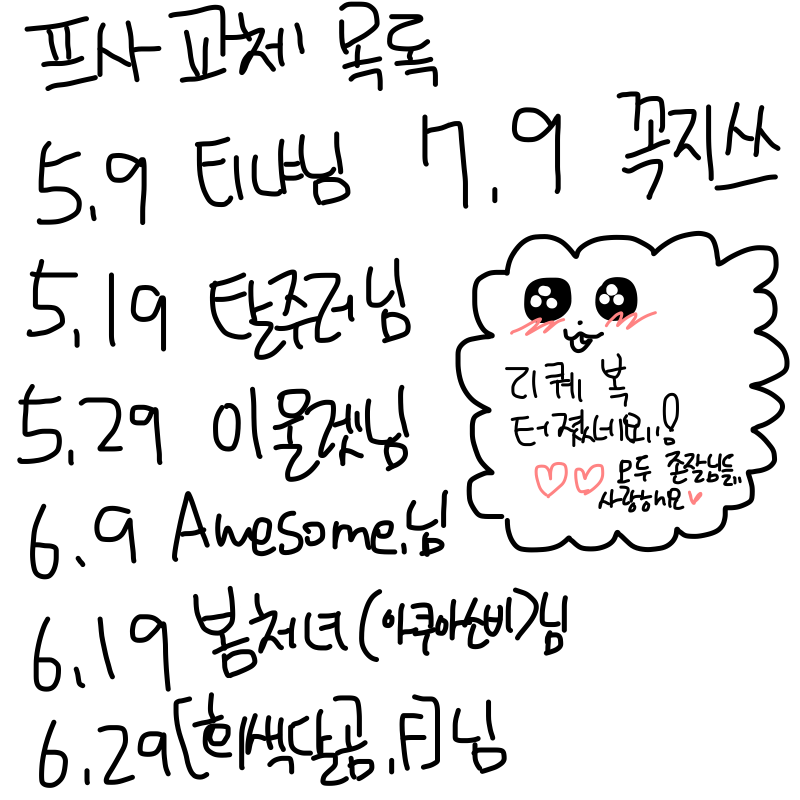 프사 교체 목록
5.9 티냐님
7.9 꼭지쓰
5.19 탈주러님
5.29 이울겠님
6.9 Awesome.님
6.19 봄처녀(아쿠아슨비)님
6.29[회색달곰.F]님
리퀘 복
터졌네요!
모두 존잘님들..
사랑해요